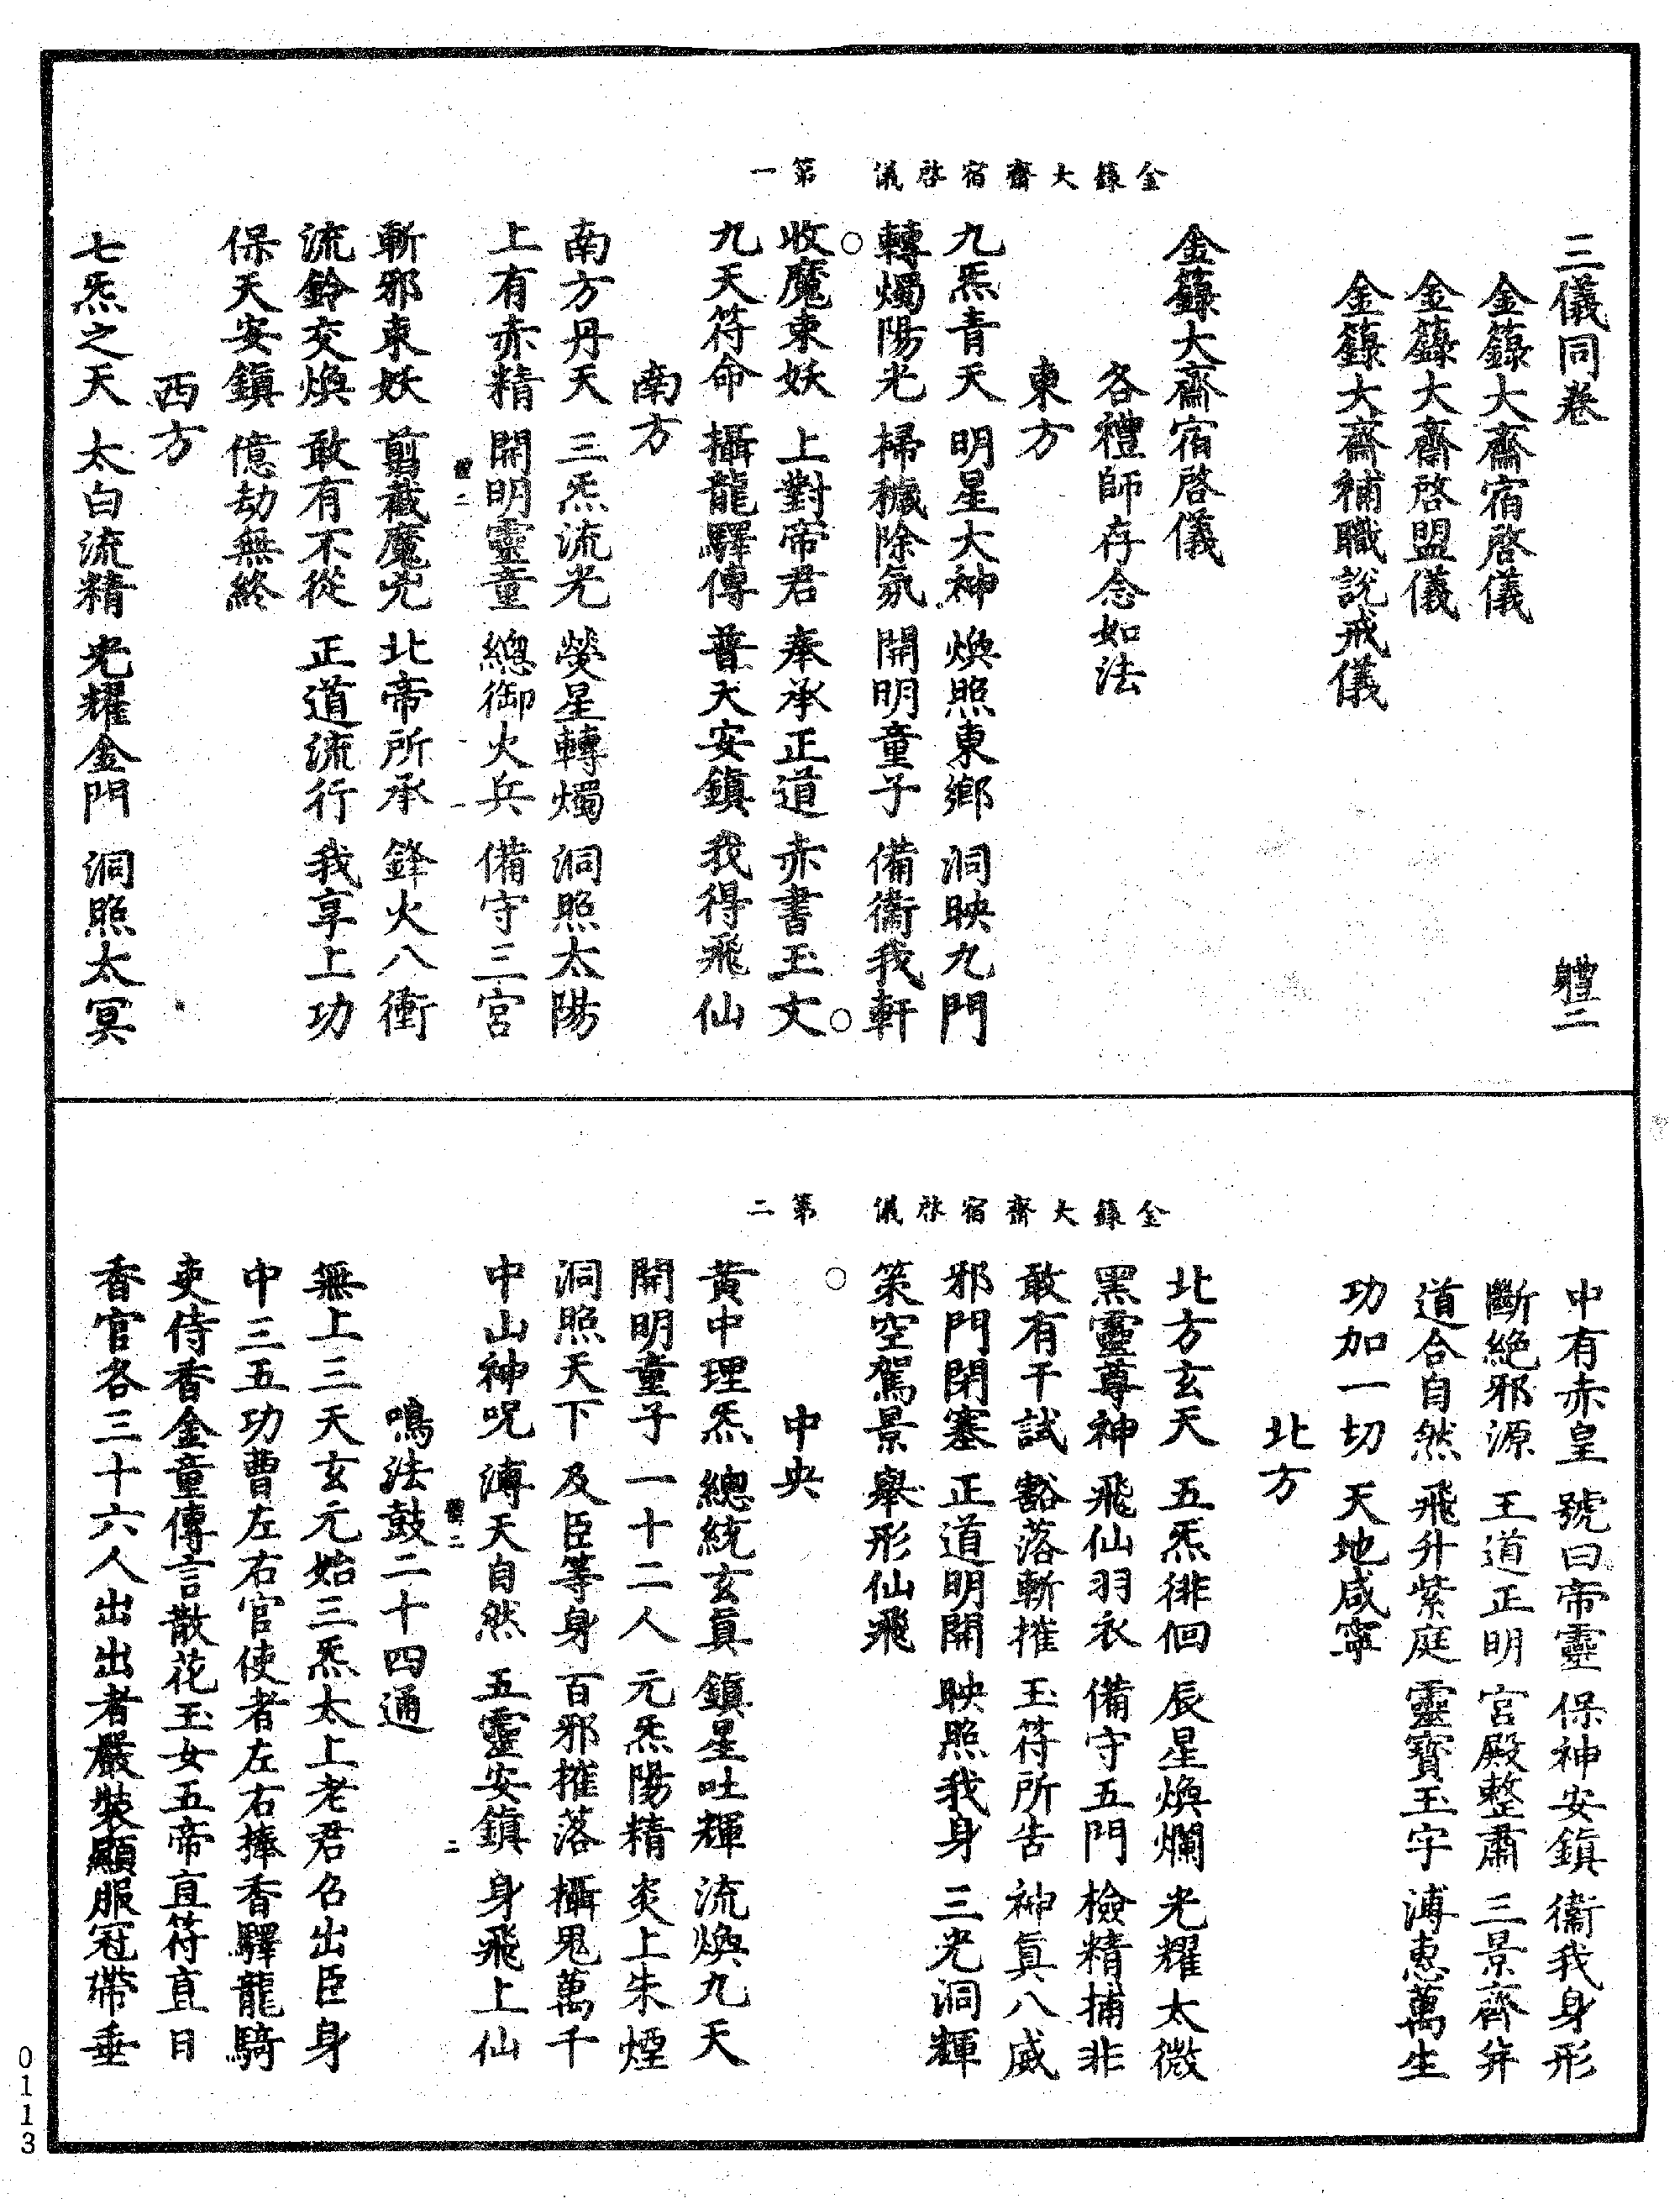 三儀同卷 軆二
金籙大齋宿啓儀
金籙大齋啓盟儀
金籙大齋補職説戒儀
金籙大齋宿啓儀 第一
金籙大齋宿啓儀
各禮師存念如法
東方
九炁青天 明星大神 煥照東鄉 洞映九門
轉燭陽光 掃穢除氛 開明童子 備衛我軒
收魔束妖 上對帝君 奉承正道 赤書玉文
九天符命 攝龍驛傳 普天安鎮 我得飛仙
南方
南方丹天 三炁流光 熒星轉燭 洞照太陽
上有赤精 開明靈童 總御火兵 備守三宮
軆二 一
斬邪束妖 剪截魔兇 北帝所承 鋒火八衝
流鈴交煥 敢有不從 正道流行 我享上功
保天安鎮 億劫無終
西方
七炁之天 太白流精 光耀金門 洞照太冥
金籙大齋宿啓儀 第二
中有赤皇 號曰帝靈 保神安鎮 衛我身形
斷絶邪源 王道正明 宮殿整肅 三景齊并
道合自然 飛升紫庭 靈寶玉字 溥惠萬生
功加一切 天地咸寧
北方
北方玄天 五炁徘徊 辰星煥爛 光耀太微
黑靈尊神 飛仙羽衣 備守五門 檢精捕非
敢有干試 豁落斬摧 玉符所告 神眞八威
邪門閉塞 正道明開 映照我身 三光洞輝
策空駕景 舉形仙飛
中央
黄中理炁 總統玄眞 鎮星吐輝 流煥九天
開明童子 一十二人 元炁陽精 炎上朱煙
洞照天下 及臣等身 百邪摧落 攝鬼萬千
中山神呪 溥天自然 五靈安鎮 身飛上仙
軆二 二
鳴法鼓二十四通
無上三天玄元始三炁太上老君召出臣身
中三五功曹左右官使者左右捧香驛龍騎
吏侍香金童傳言散花玉女五帝直符直日
香官各三十六人出出者嚴裝顯服冠帶垂
0113